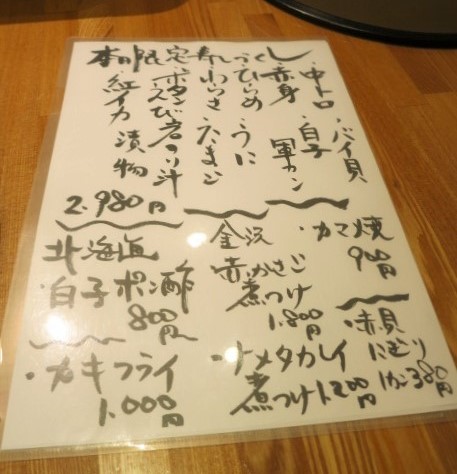 本日限定寿しづくし
・中トロ ・バイ貝
・赤身 ・白子軍カン
・ひらめ ・うに
・わらさ ・たまご
・ボタンえび ・岩のり汁
・紅イカ 漬物
2.980円
・カマ焼
900円
・赤貝
にぎり
1カン380円
金沢
赤かさご
煮つけ
1.800円
・ナメタカレイ
煮つけ1.200円
北海道
・白子ポン酢
800円
・カキフライ
1.000円